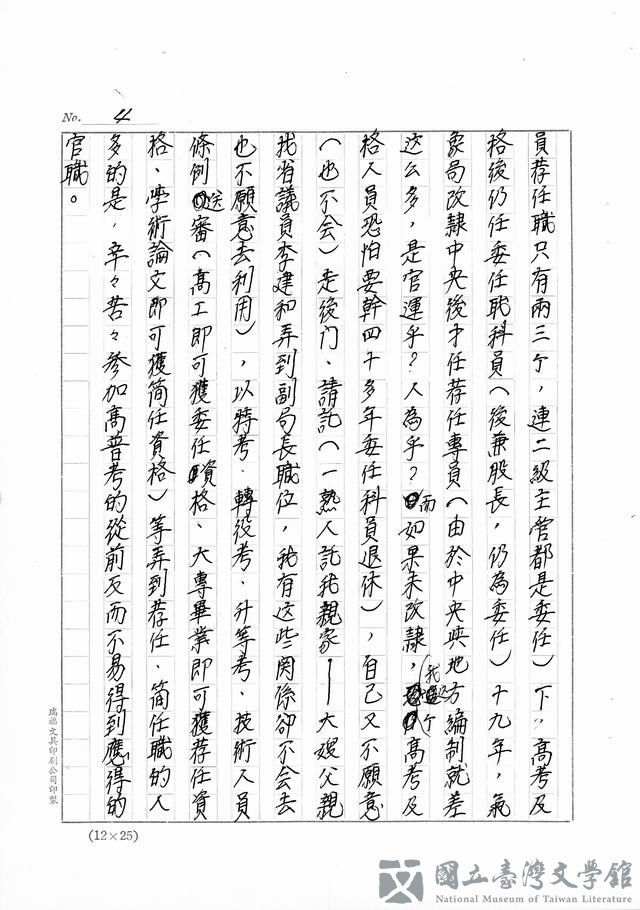 No. 4
員荐任職只有兩三个，連二級主管都是委任）下，高考及
格後仍任委任職科員（後兼股長，仍為委任）十九年，氣
象局改隸中央後才任荐任專員（由於中央與地方編制就差
这么多，是官運乎？人為乎？而如果未改隸，我这个高考及
格人員恐怕要幹四十多年委任科員退休），自己又不願意
（也不会）走後门、請託（一熟人託我親家——大嫂父親
找省議員李建和弄到副局長職位，我有这些関係卻不会去
也不願意去利用），以特考、轉役考、升等考、技術人員
條例送審（高工即可獲委任資格、大專畢業即可獲荐任資
格、學術論文即可獲简任資格）等弄到荐任、简任職的人
多的是，辛々苦々参加高普考的從前反而不易得到應得的
官職。
瑞福文具印刷公司印製
(12×25)
國立臺灣文學館
National Museum of Taiwan Literature